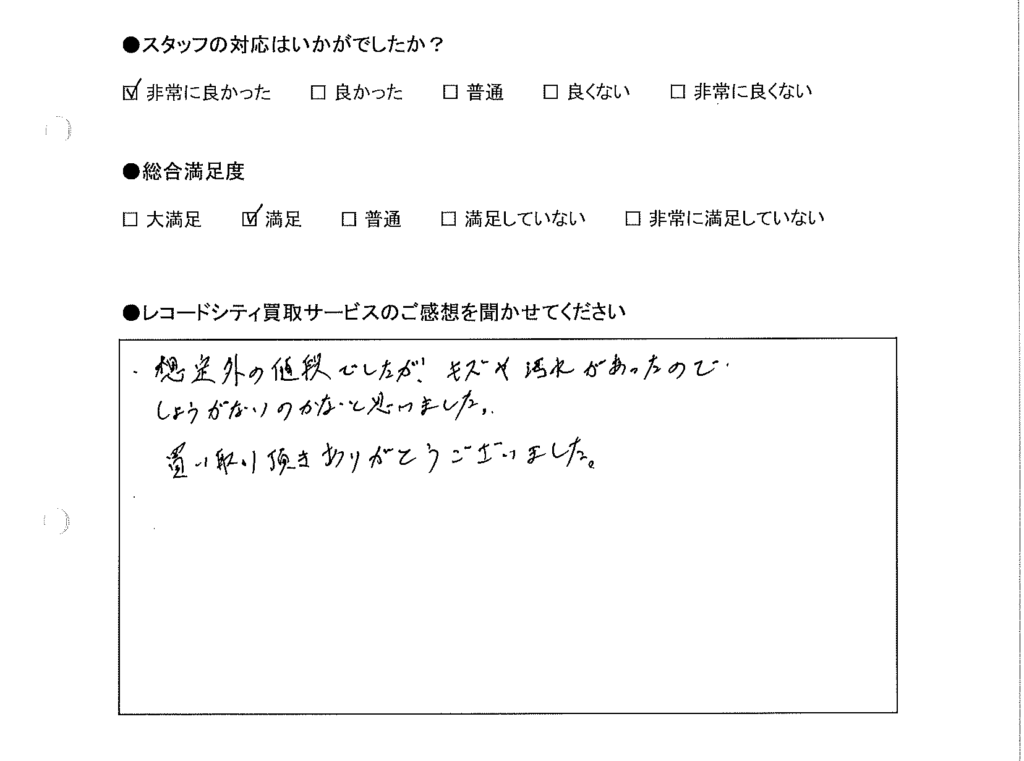 ●スタッフの対応はいかがでしたか？
☑ 非常に良かった □ 良かった □ 普通 □ 良くない □ 非常に良くない
●総合満足度
□ 大満足 ☑ 満足 □ 普通 □ 満足していない □ 非常に満足していない
●レコードシティ買取サービスのご感想を聞かせてください
想定外の値段でしたが、キズや汚れがあったので
しょうがないのかないと思いました。
買い取り頂きありがとうございました。